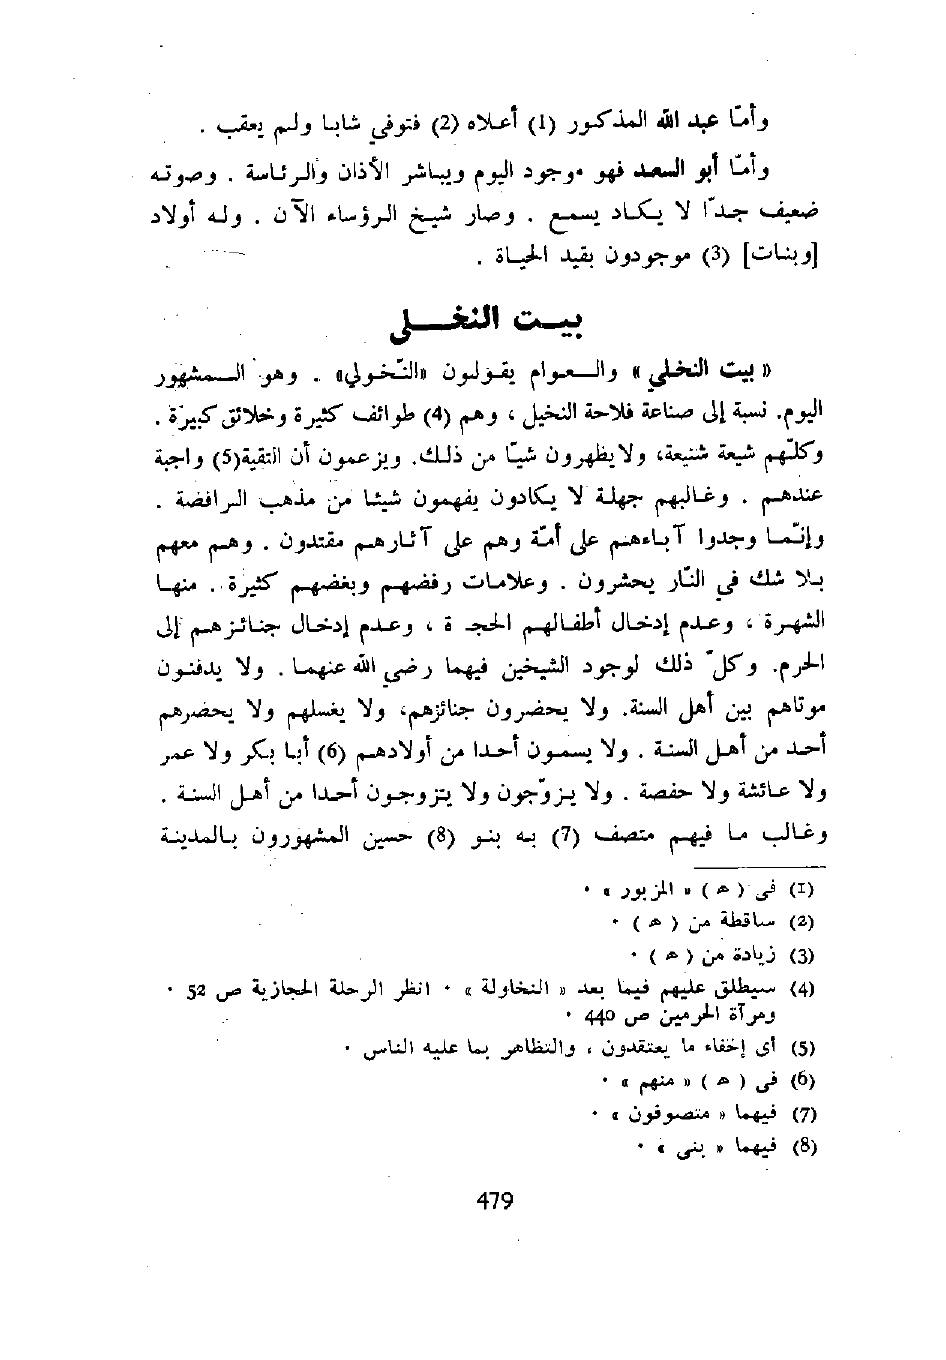 وأمّا عبد الله المذكور (1) أعلاه (2) فتوفي شابا ولم يعقب .
وأمّا أبو السعد فهو موجود اليوم ويباشر الأذان والرئاسة . وصوته
ضعيف جدّا لا يكاد يسمع . وصار شيخ الرؤساء الآن . وله أولاد
[وبنات] (3) موجودون بقيد الحياة .
بيـت النخـــلي
« بيت النخلي » والــعوام يقولون «النّخولي» . وهو الــمشهور
اليوم. نسبة إلى صناعة فلاحة النخيل ، وهم (4) طوائف كثيرة وخلائق كبيرة .
وكلّهم شيعة شنيعة، ولا يظهرون شيّا من ذلك. ويزعمون أن التقية(5) واجبة
عندهم . وغالبهم جهلة لا يكادون يفهمون شيئا من مذهب الرافضة .
وإنّما وجدوا آباءهم على أمّة وهم على آثارهم مقتدون . وهم معهم
بلا شك في النّار يحشرون . وعلامات رفضهم وبغضهم كثيرة . منها
الشهرة ، وعدم إدخال أطفالهم الحجـ ة ، وعدم إدخال جنائزهم إلى
الحرم. وكلّ ذلك لوجود الشيخين فيهما رضي الله عنهما . ولا يدفنون
موتاهم بين أهل السنة. ولا يحضرون جنائزهم، ولا يغسلهم ولا يحضرهم
أحد من أهل السنة . ولا يسمون أحدا من أولادهم (6) أبا بكر ولا عمر
ولا عائشة ولا حفصة . ولا يزوّجون ولا يتزوجون أحدا من أهل السنة .
وغالب ما فيهم متصف (7) به بنو (8) حسين المشهورون بالمدينة
(1) فى ( هـ ) « المزبور » ·
(2) ساقطة من ( هـ ) ·
(3) زيادة من ( هـ ) ·
(4) سيطلق عليهم فيما بعد « النخاولة » · انظر الرحلة الحجازية ص 52 ·
ومرآة الحرمين ص 440 ·
(5) أى إخفاء ما يعتقدون ، والتظاهر بما عليه الناس ·
(6) فى ( هـ ) « منهم » ·
(7) فيهما « متصوفون » ·
(8) فيهما « بنى » ·
479